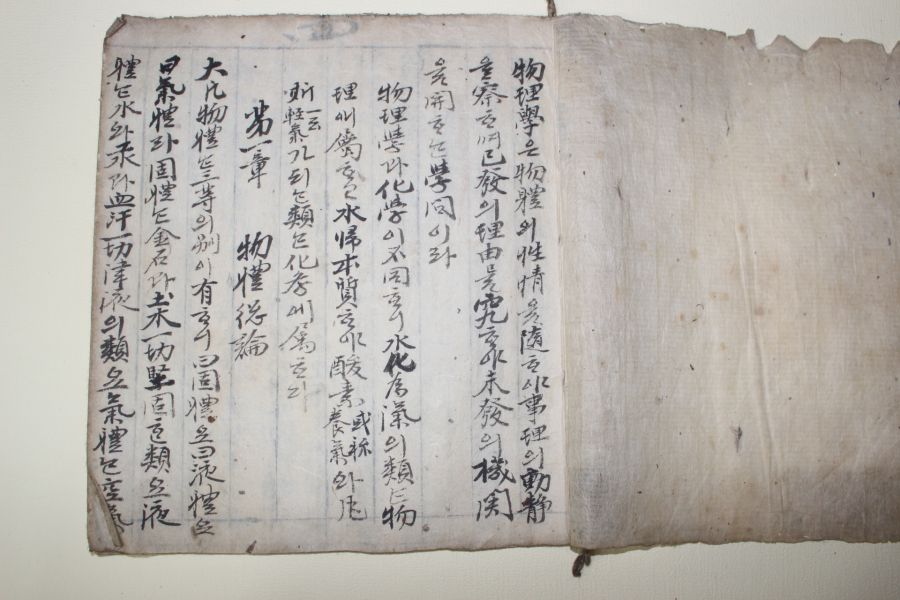 物理學은物軆의性情을隨ᄒᆞ야事理의動静
을察ᄒᆞ며已發의理由를究ᄒᆞ야未發의機関
을開ᄒᆞᄂᆞᆫ學问이라
物理學과化學이不同ᄒᆞ니水化為滊의類ᄂᆞᆫ物
理에屬ᄒᆞ고水帰本質ᄒᆞ야酸素或称養氣와
一云軽氣가되ᄂᆞᆫ類ᄂᆞᆫ化学에属ᄒᆞ니라
第一章 物軆総論
大凡物軆ᄂᆞᆫ三等의別이有ᄒᆞ니曰固軆오曰液軆오
曰氣軆라固軆ᄂᆞᆫ金石과土木一切堅固ᄒᆞᆫ類오液
軆ᄂᆞᆫ水와永과血汗一切津液의類오氣軆ᄂᆞᆫ空氣